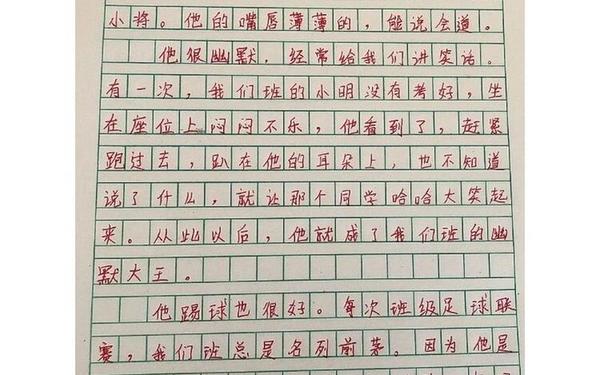 小将。他的嘴唇薄薄的，能说会道。
他很幽默，经常给我们讲笑话。
有一次，我们班的小明没有考好，坐
在座位上闷闷不乐，他看到了，赶紧
跑过去，趴在他的耳朵上，也不知道
说了什么，就让那个同学哈哈大笑起
来。从此以后，他就成了我们班的幽
默大王。
他踢球也很好。每次班级足球联
赛，我们班总是名列前茅。因为他是